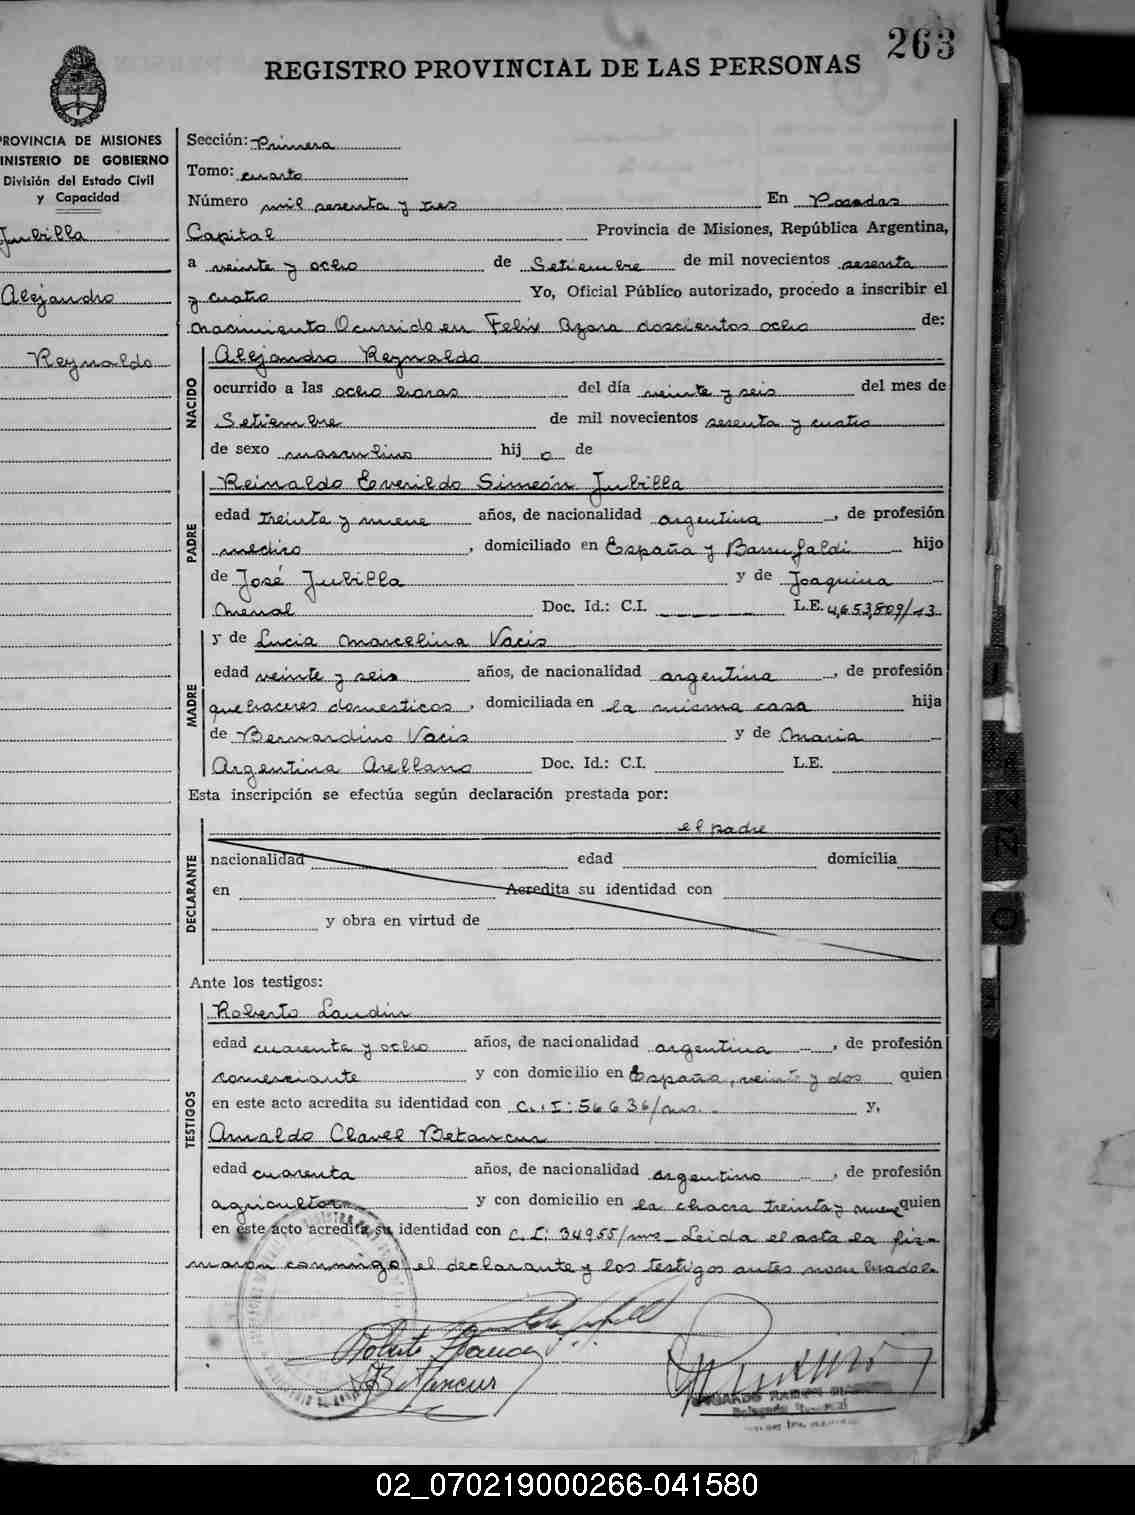 263
REGISTRO PROVINCIAL DE LAS PERSONAS
PROVINCIA DE MISIONES
MINISTERIO DE GOBIERNO
División del Estado Civil
y Capacidad
Jubilla
Alejandro
Reynaldo
Sección: Primera
Tomo: cuarto
Número mil sesenta y tres En Posadas
Capital Provincia de Misiones, República Argentina,
a veinte y ocho de Setiembre de mil novecientos sesenta
y cuatro Yo, Oficial Público autorizado, procedo a inscribir el
nacimiento Ocurrido en Felix Azara doscientos ocho de:
NACIDO
Alejandro Reynaldo
ocurrido a las ocho horas del día veinte y seis del mes de
Setiembre de mil novecientos sesenta y cuatro
de sexo masculino hij o de
PADRE
Reinaldo Everildo Simeón Jubilla
edad treinta y nueve años, de nacionalidad argentina, de profesión
medico, domiciliado en España y Barrufaldi hijo
de José Jubilla y de Joaquina
Menal Doc. Id.: C.I. L.E. 4,653,809/13
MADRE
y de Lucia Marcelina Vacis
edad veinte y seis años, de nacionalidad argentina, de profesión
quehaceres domesticos, domiciliada en la misma casa hija
de Bernardino Vacis y de Maria
Argentina Arellano Doc. Id.: C.I. L.E.
Esta inscripción se efectúa según declaración prestada por:
DECLARANTE
el padre
nacionalidad edad domicilia
en Acredita su identidad con
y obra en virtud de
Ante los testigos:
TESTIGOS
Roberto Landin
edad cuarenta y ocho años, de nacionalidad argentina, de profesión
comerciante y con domicilio en España, veinte y dos quien
en este acto acredita su identidad con C.I: 56636/ms. y,
Arnaldo Clavel Betancur
edad cuarenta años, de nacionalidad argentino, de profesión
agricultor y con domicilio en la chacra treinta y nueve quien
en este acto acredita su identidad con C.I: 34955/ms_Leida el acta la fir-
maron conmigo el declarante y los testigos antes nombrados.
02_070219000266-041580